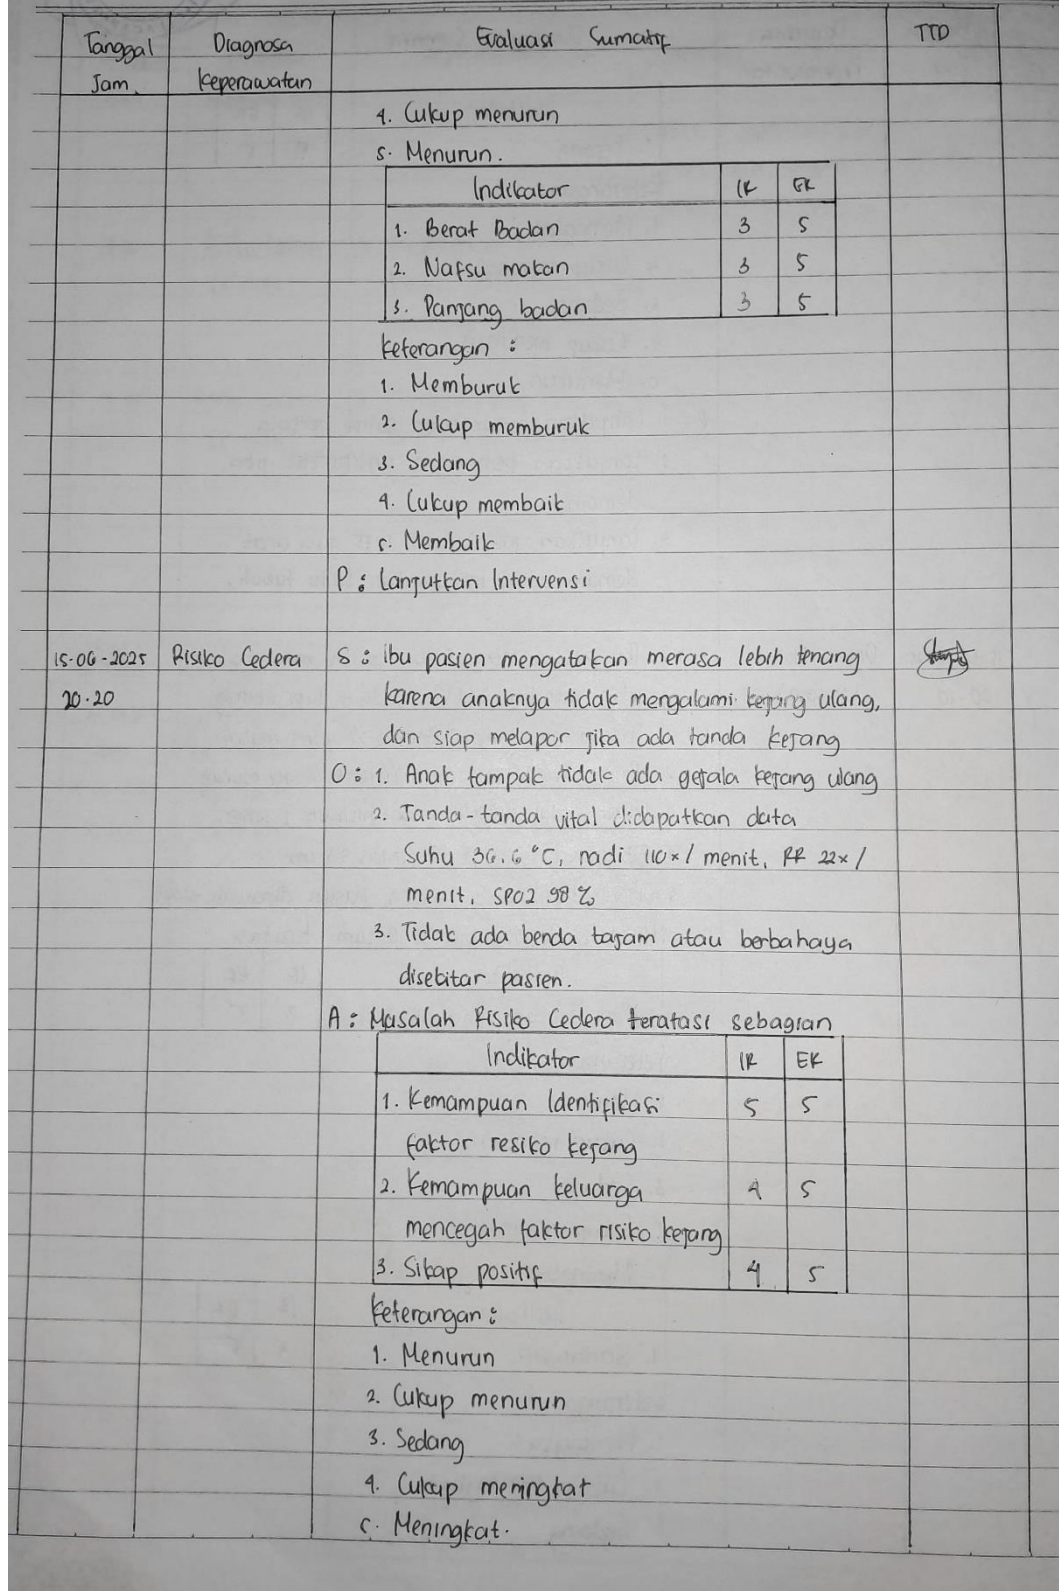 Tanggal Jam. | Diagnosa Keperawatan | Evaluasi Sumatif | TTD
4. Cukup menurun
5. Menurun.
Indikator | IR | ER
1. Berat Badan | 3 | 5
2. Nafsu makan | 3 | 5
3. Panjang badan | 3 | 5
Keterangan :
1. Memburuk
2. Cukup memburuk
3. Sedang
4. Cukup membaik
5. Membaik
P : Lanjutkan Intervensi
15-06-2025 | Risiko Cedera | S : ibu pasien mengatakan merasa lebih tenang
20.20 | karena anaknya tidak mengalami kejang ulang,
dan siap melapor jika ada tanda kejang
O : 1. Anak tampak tidak ada gejala kejang ulang
2. Tanda-tanda vital didapatkan data
Suhu 36,6 °C, nadi 110x/menit, RR 22x/
menit, SPO2 98 %
3. Tidak ada benda tajam atau berbahaya
disekitar pasien.
A : Masalah Risiko Cedera teratasi sebagian
Indikator | IR | ER
1. Kemampuan Identifikasi | 5 | 5
faktor resiko kejang
2. Kemampuan keluarga | 4 | 5
mencegah faktor risiko kejang
3. Sikap positif | 4 | 5
Keterangan :
1. Menurun
2. Cukup menurun
3. Sedang
4. Cukup meningkat
5. Meningkat.